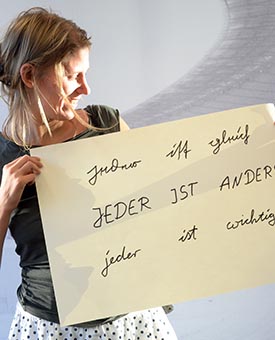 jeder ist gleich
JEDER IST ANDERS
jeder ist wichtig